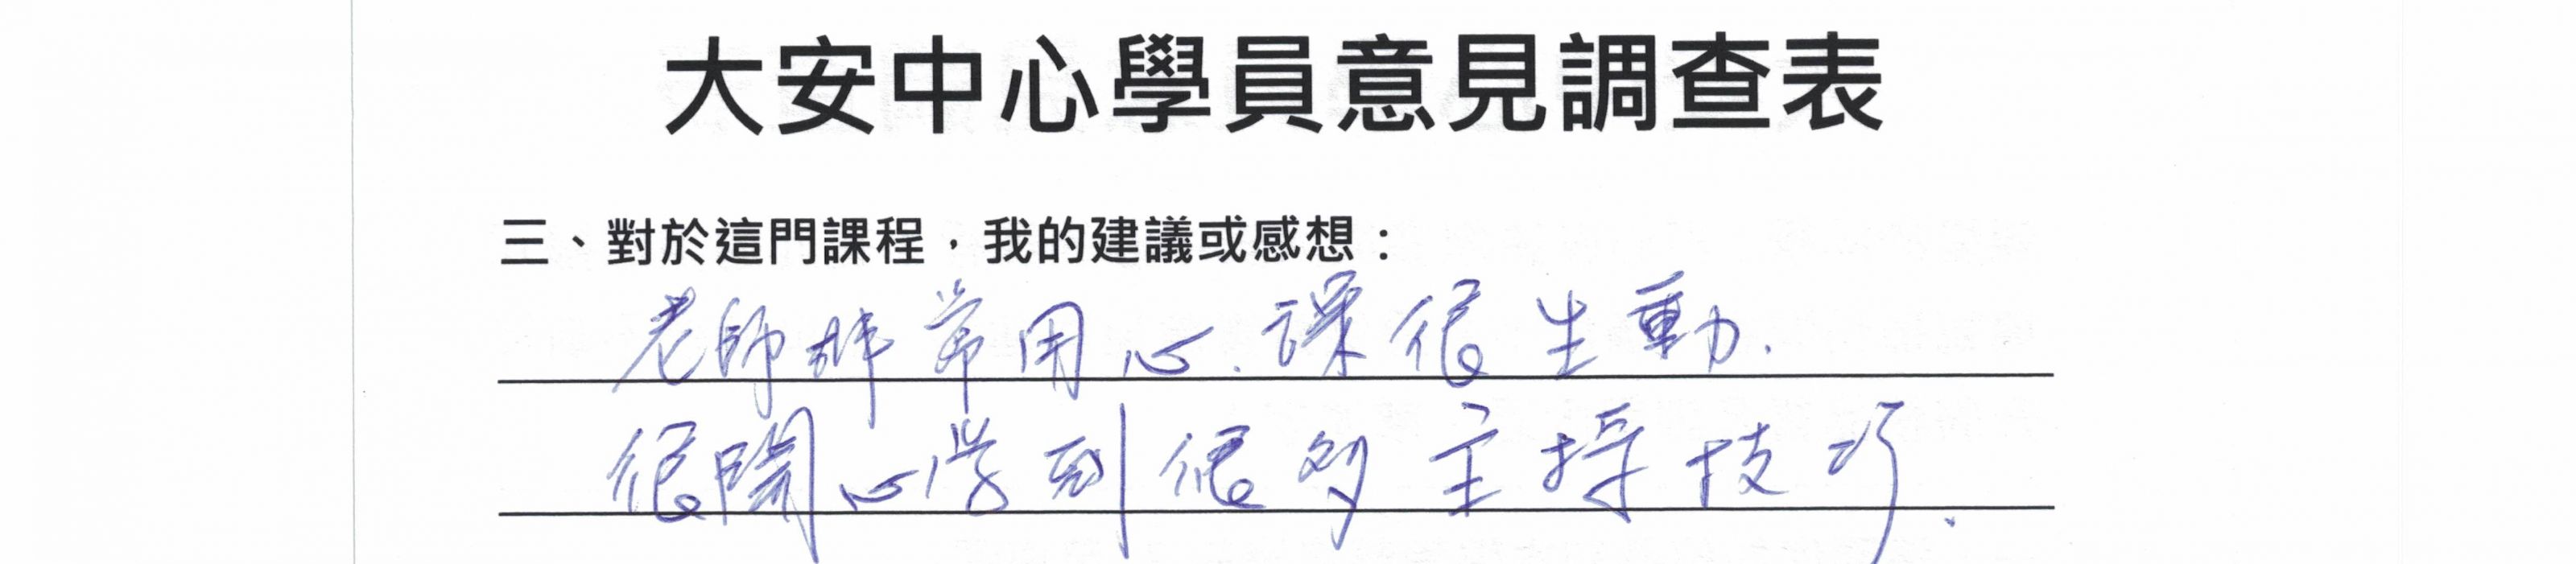 大安中心學員意見調查表
三、對於這門課程，我的建議或感想：
老師非常用心.課很生動.
很開心学到很多主持技巧.